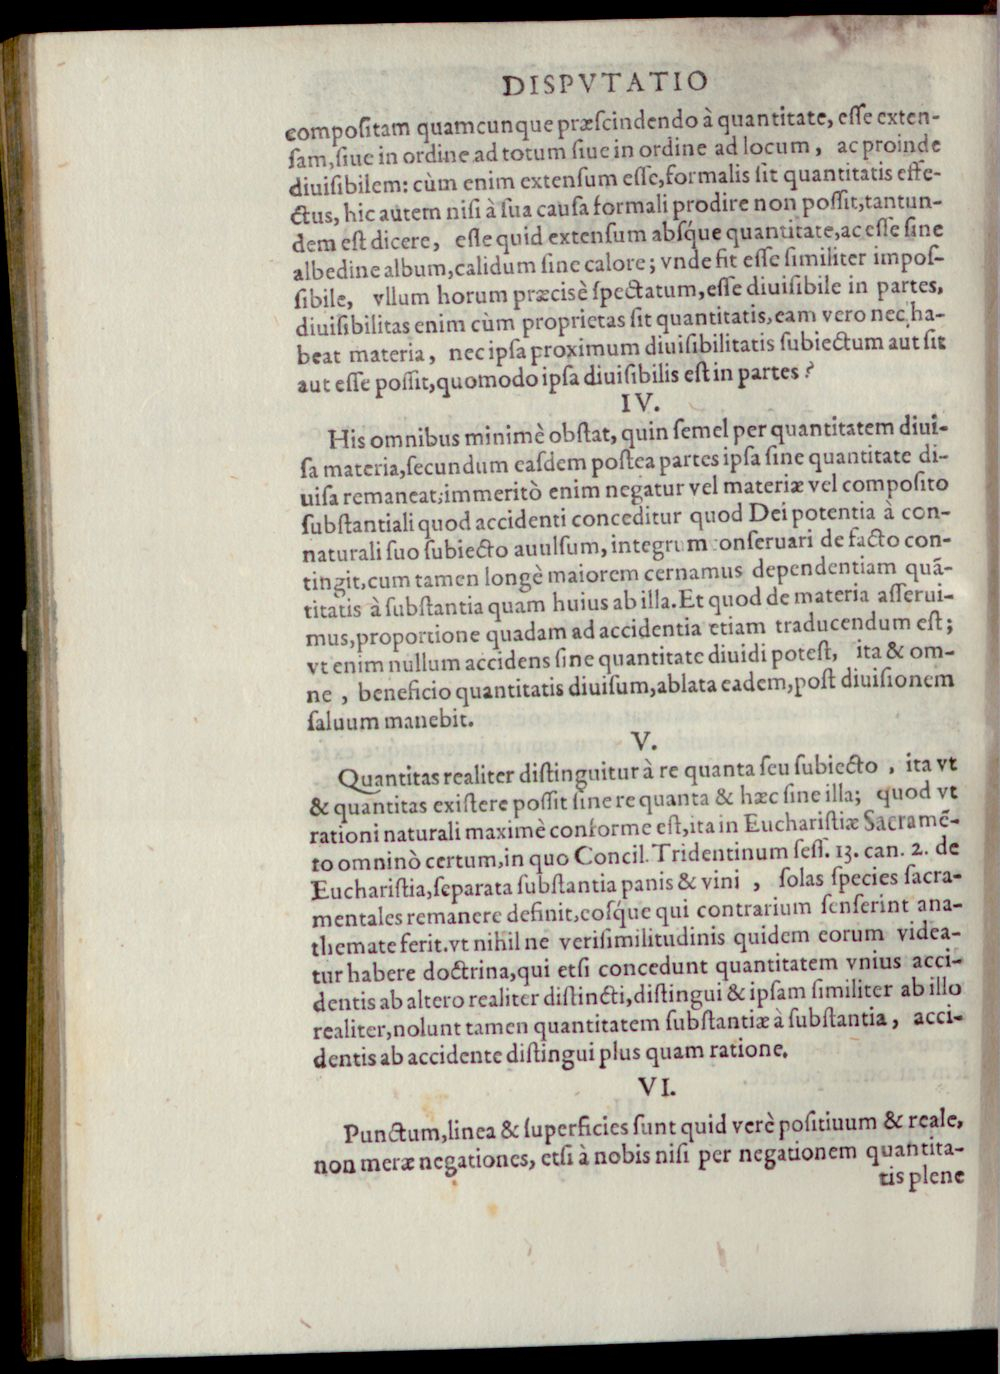 DISPVTATIO
compositam quamcunque præscindendo à quantitate, esse exten-
sam, siue in ordine ad totum siue in ordine ad locum, ac proinde
diuisibilem: cùm enim extensum esse, formalis sit quantitatis effe-
ctus, hic autem nisi à sua causa formali prodire non possit, tantun-
dem est dicere, esse quid extensum absq́ue quantitate, ac esse sine
albedine album, calidum sine calore; vnde fit esse similiter impos-
sibile, vllum horum præcisè spectatum, esse diuisibile in partes,
diuisibilitas enim cùm proprietas sit quantitatis, eam vero nec ha-
beat materia, nec ipsa proximum diuisibilitatis subiectum aut sit
aut esse possit, quomodo ipsa diuisibilis est in partes?
IV.
His omnibus minimè obstat, quin semel per quantitatem diui-
sa materia, secundum easdem postea partes ipsa sine quantitate di-
uisa remaneat; immeritò enim negatur vel materiæ vel composito
substantiali quod accidenti conceditur quod Dei potentia à con-
naturali suo subiecto auulsum, integrum conseruari de facto con-
tingit, cum tamen longè maiorem cernamus dependentiam quã-
titatis à substantia quam huius ab illa. Et quod de materia asserui-
mus, proportione quadam ad accidentia etiam traducendum est;
vt enim nullum accidens sine quantitate diuidi potest, ita & om-
ne, beneficio quantitatis diuisum, ablata eadem, post diuisionem
saluum manebit.
V.
Quantitas realiter distinguitur à re quanta seu subiecto, ita vt
& quantitas existere possit sine re quanta & hæc sine illa; quod vt
rationi naturali maximè conforme est, ita in Eucharistiæ Sacramẽ-
to omninò certum, in quo Concil. Tridentinum sess. 13. can. 2. de
Eucharistia, separata substantia panis & vini, solas species sacra-
mentales remanere definit, eosq́ue qui contrarium senserint ana-
themate ferit. vt nihil ne verisimilitudinis quidem eorum videa-
tur habere doctrina, qui etsi concedunt quantitatem vnius acci-
dentis ab altero realiter distincti, distingui & ipsam similiter ab illo
realiter, nolunt tamen quantitatem substantiæ à substantia, acci-
dentis ab accidente distingui plus quam ratione.
VI.
Punctum, linea & superficies sunt quid verè positiuum & reale,
non meræ negationes, etsi à nobis nisi per negationem quantita-
tis plene